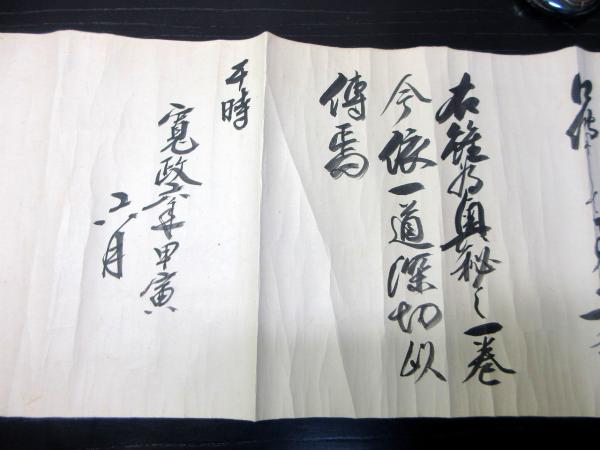 口傳
右雖為奥秘之一巻
今依一道深切以
傳焉
于時
寛政六年甲寅
二月